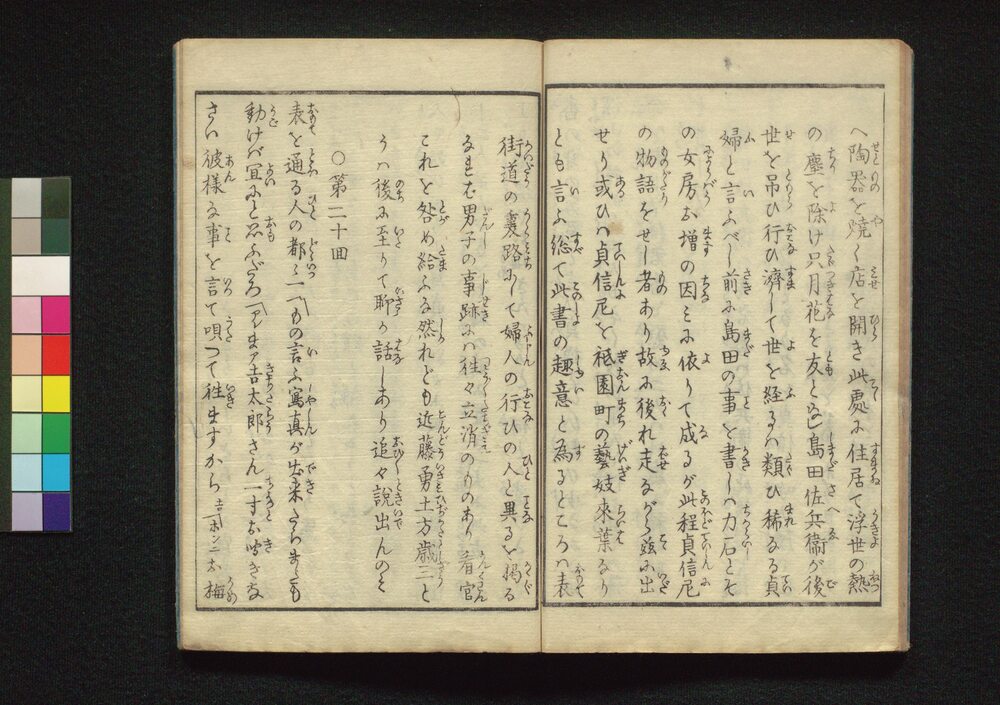 へ陶器を焼く店を開き此處に住居て浮世の熱
の塵を除け只月花を友とし島田佐兵衞が後
世を吊ひ行ひ濟して世を経るハ類ひ稀なる貞
婦と言ふべし前に島田の事を書しハ力石とそ
の女房お増の因みに依りて成るが此程貞信尼
の物語をせし者あり故に後れ走ながら茲に出
せり或ひハ貞信尼を祇園町の藝妓來葉なり
とも言ふ総て此書の趣意と為るところハ表
街道の裏路にして婦人の行ひの人と異るを掲る
なれど男子の事跡にハ往々立消のものあり看官
これを咎め給ふな然れども近藤勇土方歳三と
うハ後に至りて聊か話しあり追々説出んのミ
○第二十回
表を通る人の都々一〽もの言ふ寫真が出来たらまたも
動けバ宜にと思ふだろ〽アレまァ吉太郎さん一寸お聞きな
さい彼様な事を言て唄つて徃ますから吉〽ホンニお梅